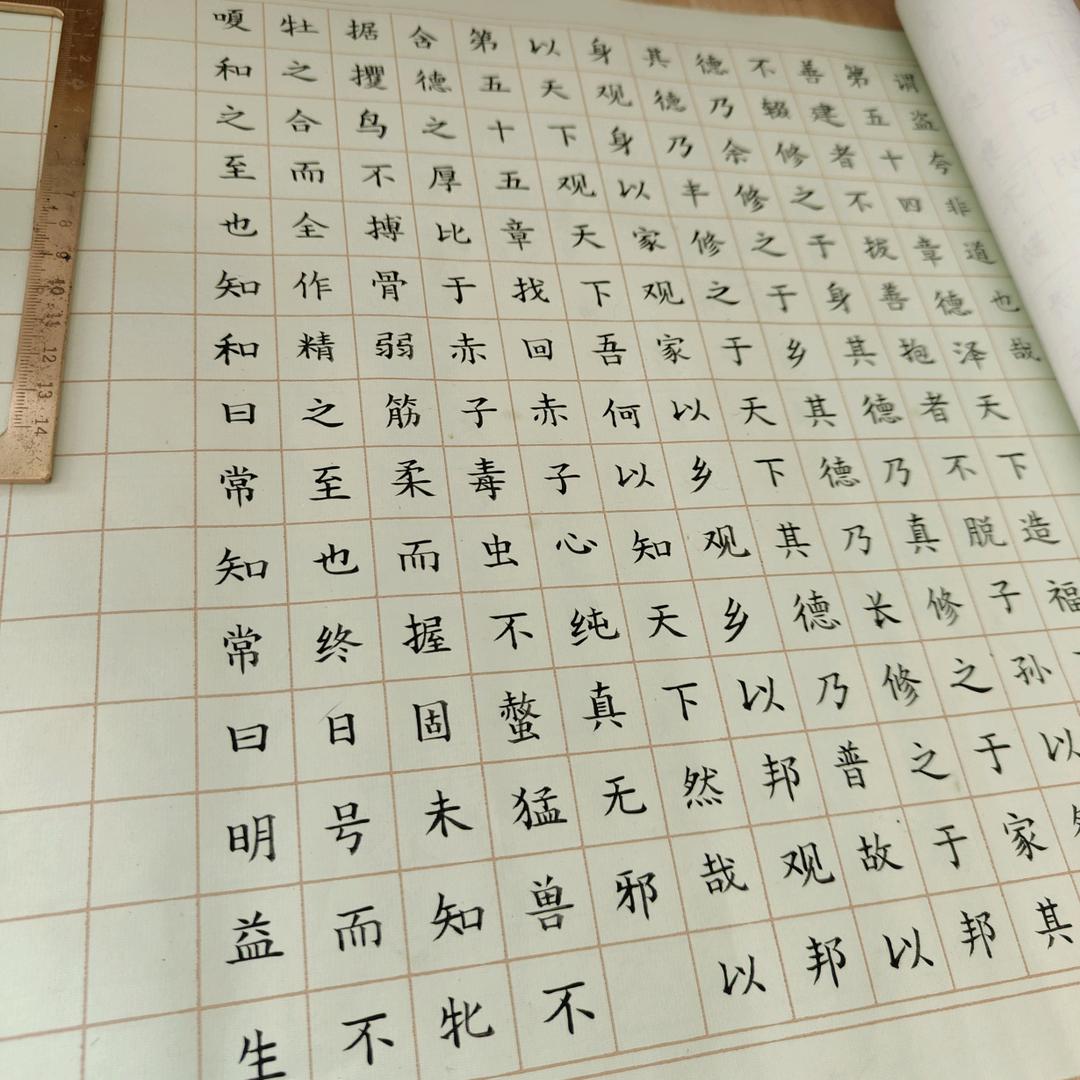 谓盗夸非道也哉
第五十四章德泽天下造福
善建者不拔善抱者不脱子孙以
不辍修之于身其德乃真修之于家其
德乃余修之于乡其德乃长修之于邦
其德乃丰修之于天下其德乃普故以
身观身以家观家以乡观乡以邦观邦
以天下观天下吾何以知天下然哉以
第五十五章找回赤子心纯真无邪
含德之厚比于赤子毒虫不螫猛兽不
据攫鸟不搏骨弱筋柔而握固未知牝
牡之合而全作精之至也终日号而不
嗄和之至也知和曰常知常曰明益生